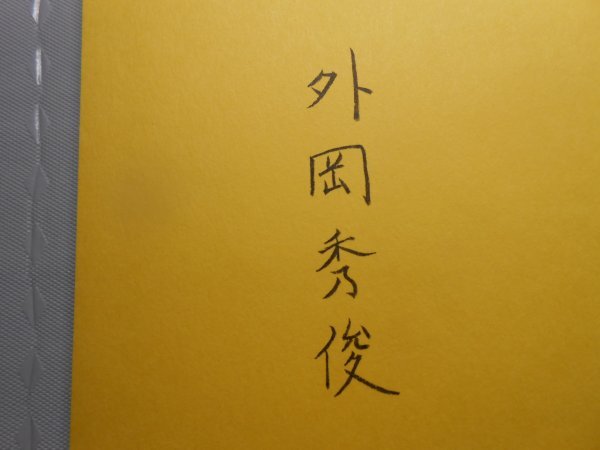 外岡秀俊